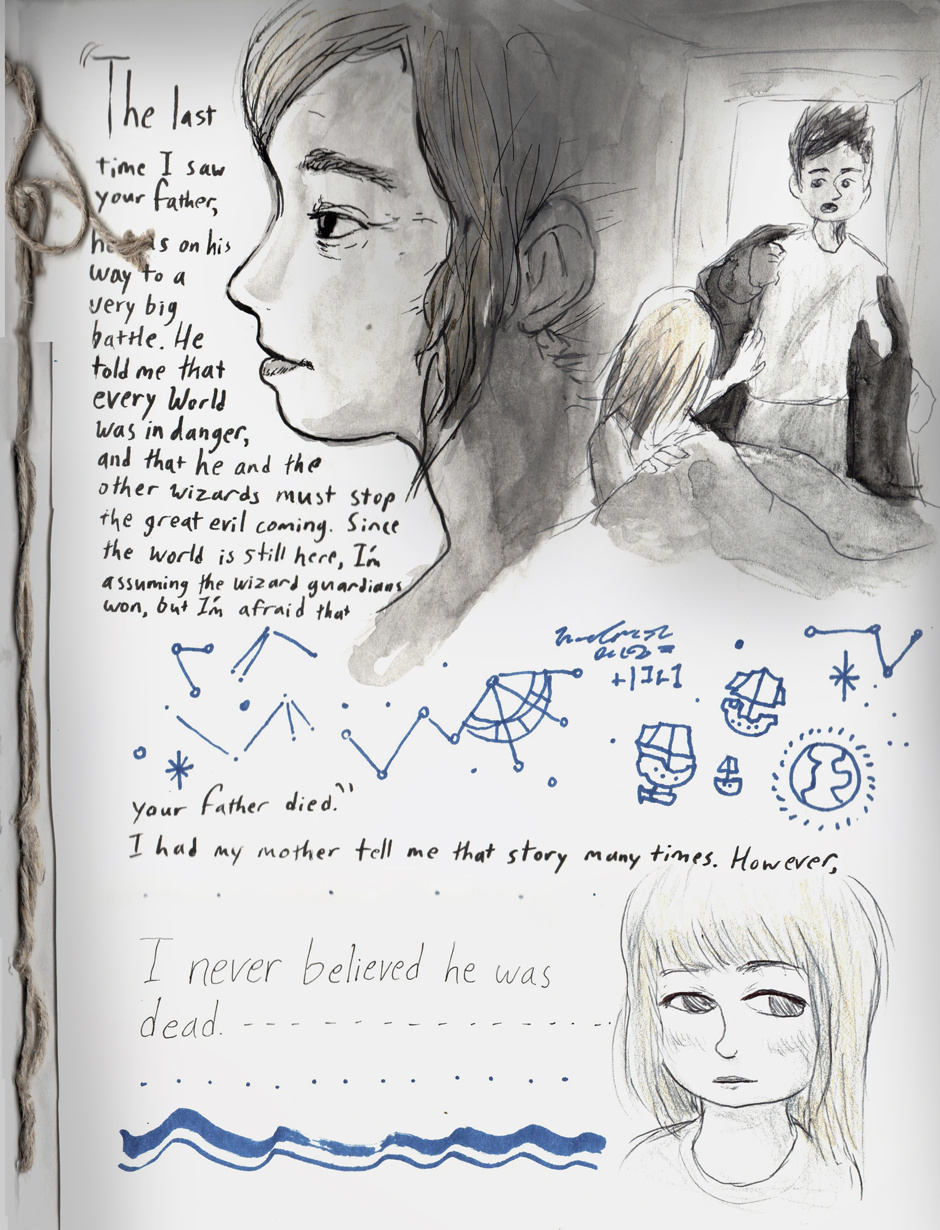 "The last
time I saw
your father,
he was on his
way to a
very big
battle. He
told me that
every World
was in danger,
and that he and the
other wizards must stop
the great evil coming. Since
the world is still here, I'm
assuming the wizard guardians
won, but I'm afraid that
your father died."
I had my mother tell me that story many times. However,
I never believed he was
dead.